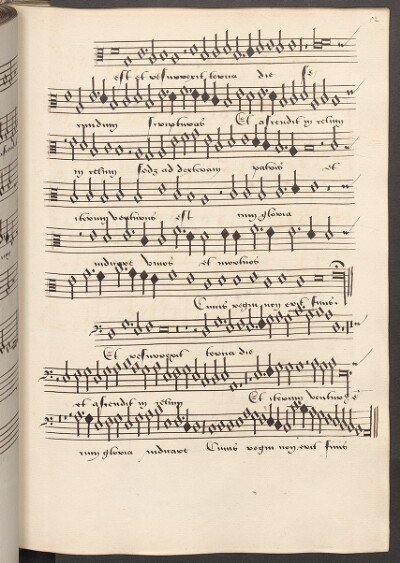 est et resurrexit tertia die se
cundum scripturas Et asсendit in celum
in celum sedet ad dexteram patris et
iterum venturus est cum gloria
iudicare vivos et mortuos
Cuius regni non erit finis
Et resurrexit tertia die
et ascendit in celum Et iterum venturus e
cum gloria iudicare Cuius regni non erit finis